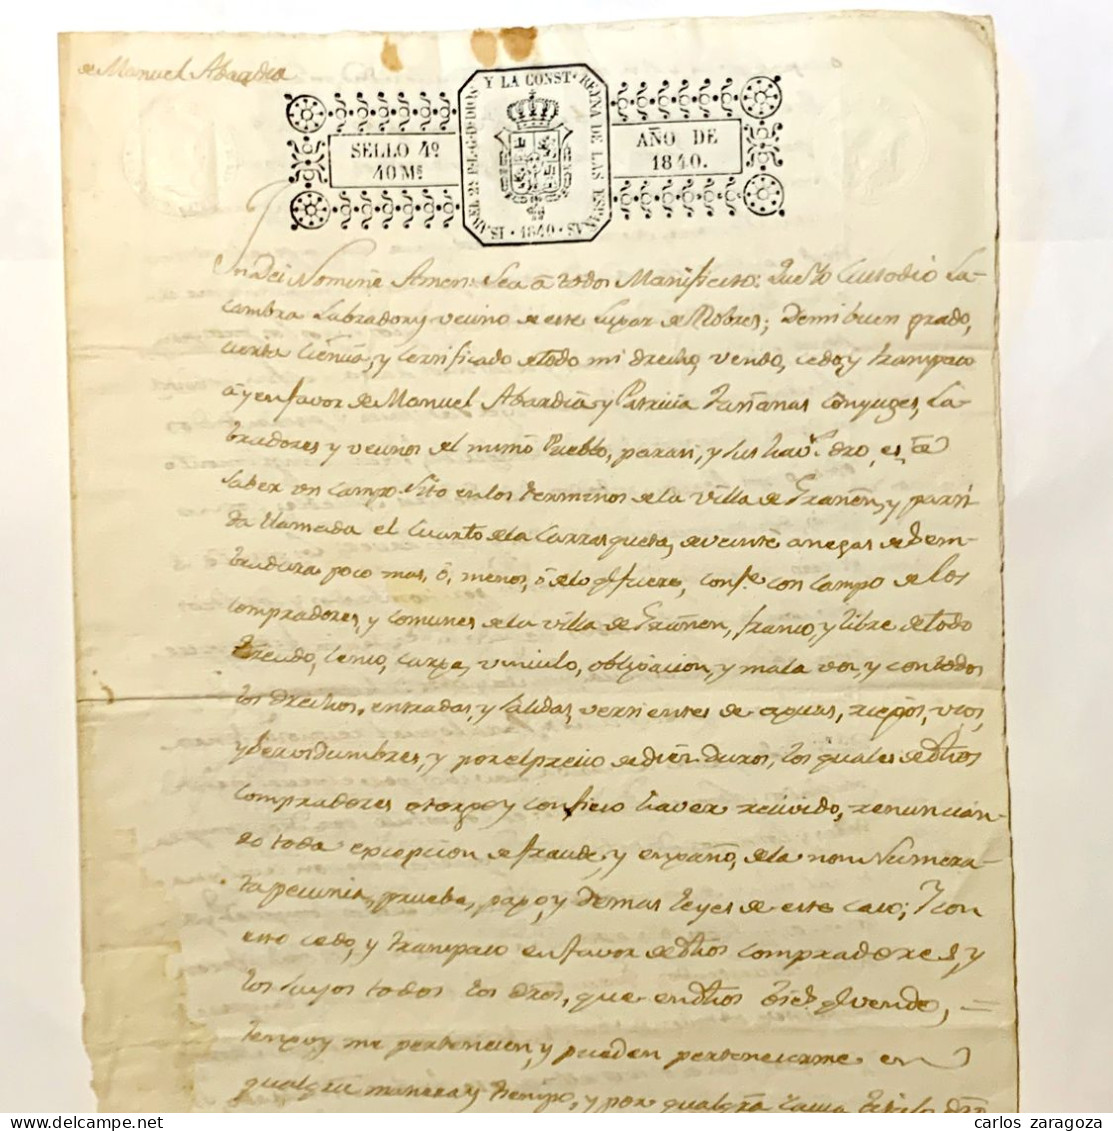 de Manuel Abardia
SELLO 4º
40 Mˢ
ISABEL 2ª P.L.G.D.DIOS Y LA CONSTⁿ REYNA DE LAS ESPAÑAS
1840
AÑO DE
1840.
In Dei Nomine Amen: Sea á todos Manifiesto: Que Yo Custodio La-
cambra Labrador y vecino de este Lugar de Robres; De mi buen grado,
cierta Ciencia, y certificado de todo mi drecho, vendo, cedo, y transpaso
á y en favor de Manuel Abardia y Patricia Tañanas Conyuges, La-
bradores y vecinos del mismo Pueblo, para si, y sus hav. dro, es á
saber un campo sito en los terminos de la villa de Grañen, y parti-
da llamada el Cuarto de la Carrasqueta, de veinte anegas de Sem-
bradura poco mas, ó, menos, ó de lo q. fuere, conf.ᵉ con campo de los
compradores, y comunes de la villa de Grañen, franco, y libre de todo
treudo, Censo, carga, vinculo, obligacion, y mala voz, y con todos
los drechos, entradas, y salidas, vertientes de aguas, riegos, usos,
y Servidumbres, y por el precio de diez duros, los quales de dhos
compradores otorgo y confieso haver recivido, renuncian-
do toda excepcion de fraude, y engaño, de la non Numera-
ta pecunia, prueba, pago, y demas Leyes de este caso; Y con
esto cedo, y transpaso en favor de dhos compradores, y
los suyos todos los dros, que en dhos q. vendo,
tengo y me pertenecen, y pueden pertenecerme en
qualqᵃ manera y tiempo, y por qualqᵃ causa
carlos_zaragoza